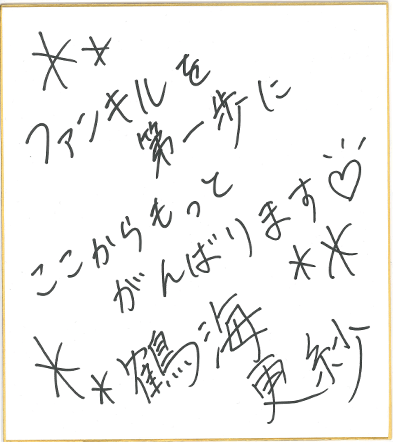 ファンキルを
第一歩に
ここからもって
がんばります♡
鶴海
更紗